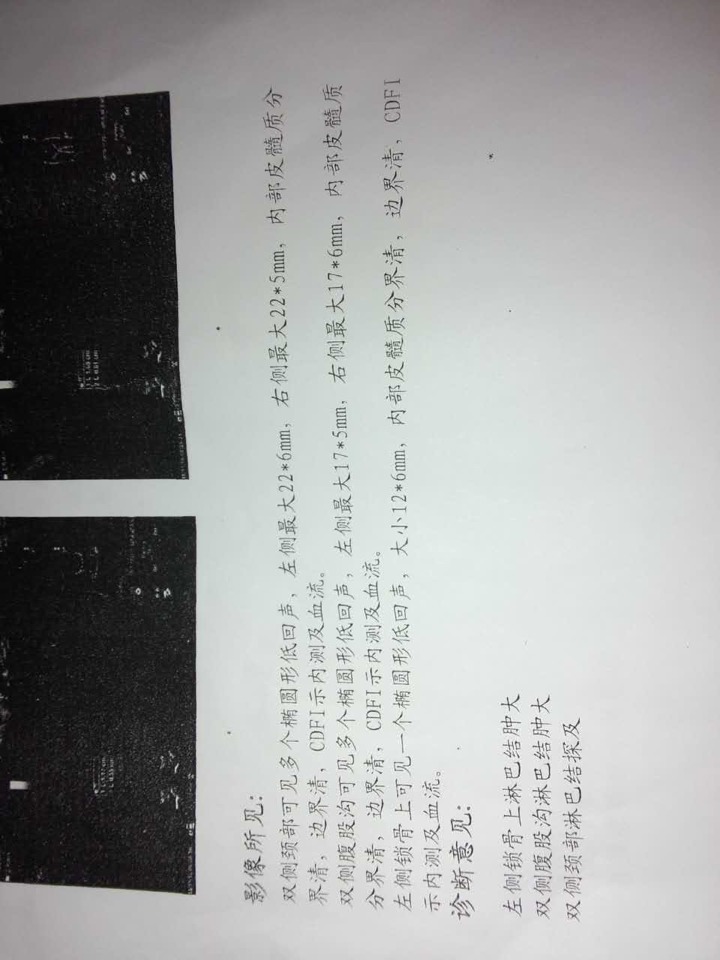 影像所见:
双侧颈部可见多个椭圆形低回声, 左侧最大22*6mm, 右侧最大22*5mm, 内部皮髓质分
界清, 边界清, CDFI示内测及血流。
双侧腹股沟可见多个椭圆形低回声, 左侧最大17*5mm, 右侧最大17*6mm, 内部皮髓质
分界清, 边界清, CDFI示内测及血流。
左侧锁骨上可见一个椭圆形低回声, 大小12*6mm, 内部皮髓质分界清, 边界清, CDFI
示内测及血流。
诊断意见:
左侧锁骨上淋巴结肿大
双侧腹股沟淋巴结肿大
双侧颈部淋巴结探及